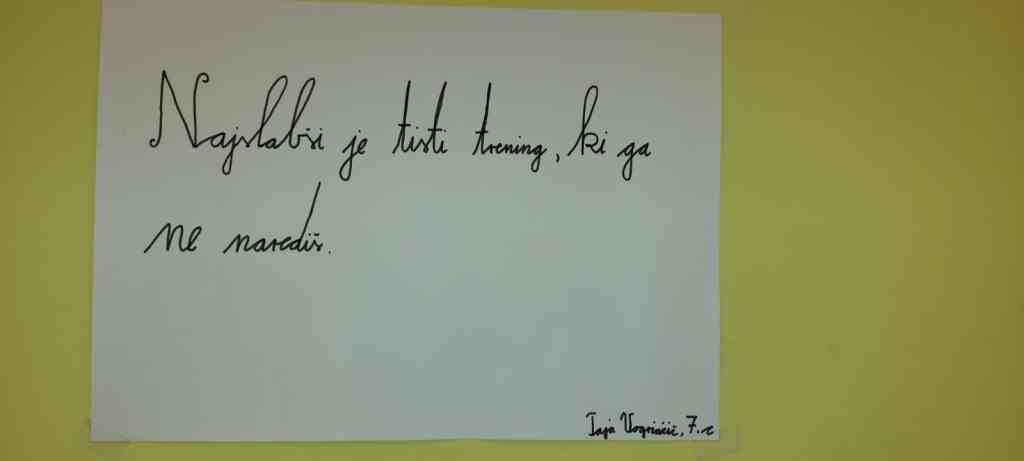 Najslabši je tisti trening, ki ga
ne narediš.
Taja Vogrinčič, 7.c